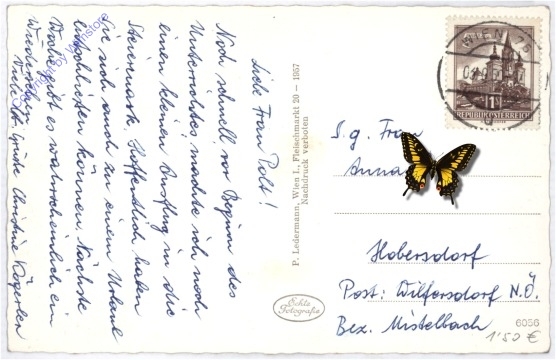 Liebe Frau Polt!
Noch schnell vor Beginn des
Unterrichtes machte ich noch
einen kleinen Ausflug in die
Steiermark. Hoffentlich haben
Sie sich auch zu einem Urlaub
entschließen können. Nächste
Woche gibt es wahrscheinlich ein
Wiedersehen.
Viele lb. Grüße Christine
P. Ledermann, Wien I., Fleischmarkt 20 – 1957
Nachdruck verboten
Echte
Fotografie
WIEN
1S
REPUBLIK ÖSTERREICH
S. g. Frau
Anna
Hobersdorf
Post: Wilfersdorf N.Ö.
Bez. Mistelbach
6056
1'50 €